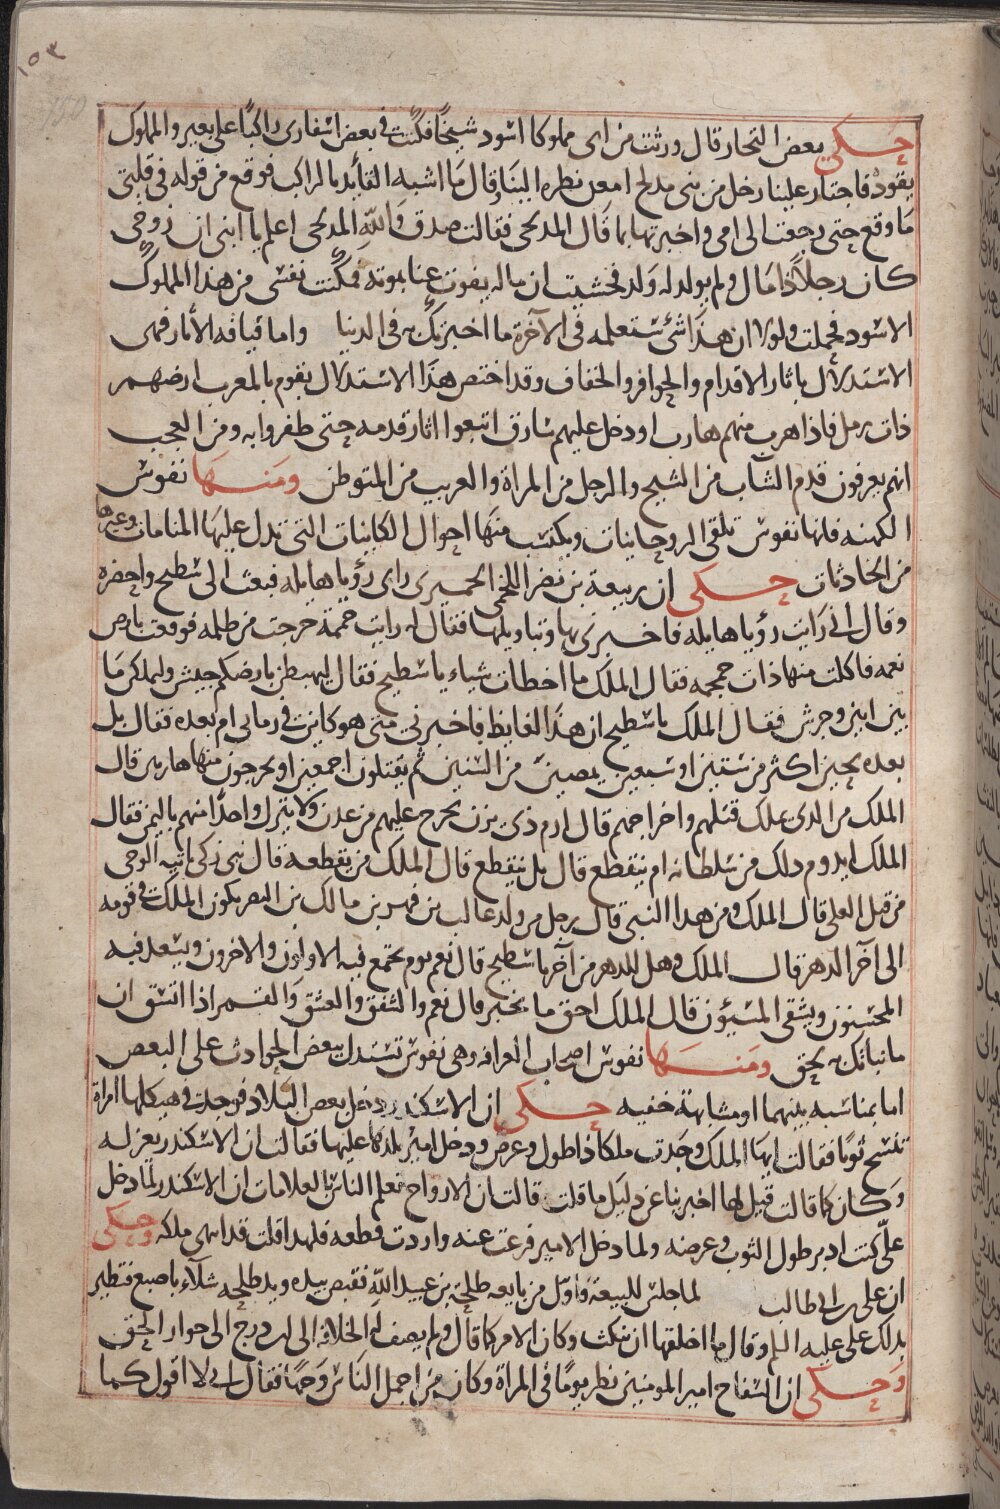 ١٥٣
150
حكى بعض التجار قال ورثت من ابى مملوكا اسود شيخا فكنت فى بعض اسفارى راكبا على بعير والمملوك
يقوده فاجتاز علينا رجل من بنى مدلج امعن نظره الينا وقال ما اشبه القايد بالراكب فوقع من قوله فى قلبى
ما وقع حتى رجعت الى امى واخبرتها بما قال المدلجى فقالت صدق والله المدلجى اعلم يا ابنى ان زوجى
كان رجلا ذا مال ولم يولد له ولد فخشيت ان ماله يفوت عنا بموته فمكنت نفسى من هذا المملوك
الاسود فحملت ولولا ان هذا شئ ستعلمه فى الآخرة ما اخبرتك به فى الدنيا واما قيافه الأثار فهى
الاستدلال باثار الاقدام والحوافر والخفاف وقد اختص هذا الاستدلال بقوم بالمغرب ارضهم
ذات رمل فاذا هرب منهم هارب او دخل عليهم سارق اتبعوا اثار قدمه حتى ظفروا به ومن العجب
انهم يعرفون قدم الشاب من الشيخ والرجل من المراة والغريب من المتوطن ومنها نفوس
الكهنه فانها نفوس تلقى الروحانيات ويكتسب منها احوال الكاينات التى تدل عليها المنامات وغيرها
من الحادثات حكى ان ربيعة بن نضر اللخمى الحميرى راى رؤيا هايله فبعث الى سطيح واحضره
وقال انى رايت رؤيا هايله فاخبرنى بها وبتاويلها فقال له رايت حممة خرجت من ظلمه فوقعت بارض
تهمه فاكلت منها ذات جمجمه فقال الملك ما اخطات شياء يا سطيح فقال ليهبطن بارضكم جيش وليملكن ما
بين ابين وجرش فقال الملك يا سطيح ان هذا لغايظ فاخبرنى متى هو كاين فى زمانى ام بعده فقال بل
بعده بحين اكثر من ستين او سبعين يمضين من السنين ثم يقتلون اجمعين او يخرجون منها هاربين قال
الملك من الذى يملك قتلهم واخراجهم قال ارم ذى يزن يخرج عليهم من عدن ولا يترك واحدا منهم باليمن فقال
الملك ايدوم ذلك من سلطانه ام ينقطع قال بل ينقطع قال الملك من يقطعه قال نبى زكى ياتيه الوحى
من قبل العلى قال الملك ومن هذا النبى قال رجل من ولد غالب بن فهر بن مالك بن النضر يكون الملك فى قومه
الى آخر الدهر قال الملك وهل للدهر من آخر يا سطيح قال نعم يوم يجتمع فيه الاولون والاخرون ويسعد فيه
المحسنون ويشقى المسيؤن قال الملك احق ما تخبر قال نعم والشفق والغسق والقمر اذا اتسق ان
ما نباتك به لحق ومنها نفوس اصحاب العرافه وهى نفوس تستدل ببعض الحوادث على البعض
اما بمناسبه بينهما او مشابهة خفيه حكى ان الاسكندر دخل بعض البلاد فوجد فى هيكلها امراة
تنسج ثوبا فقالت ايها الملك وجدت ملكا ذا طول وعرض ودخل امير بلدها عليها فقالت ان الاسكندر يعزله
وكان كما قالت قيل لها اخبرينا عن دليل ما قلت قالت ان الارواح تعلم الناس العلامات ان الاسكندر لما دخل
على كنت ادبر طول الثوب وعرضه ولما دخل الامير فرغت عنه واردت قطعه فلهذا قلت قد انتهى ملكه وحكى
ان على بن ابى طالب لما جلس للبيعة فاول من بايعه طلحة بن عبيد الله فقبض بيده ويد طلحه شلاء باصبع فتطير
بذلك على عليه السلم وقال ما اخلقها ان تنكث وكان الامر كما قال ولم يصف له الخلافه الى ان درج الى جوار الحق
وحكى ان السفاح امير المومنين نظر يوما فى المراة وكان من اجمل الناس وجها فقال انى لا اقول كما